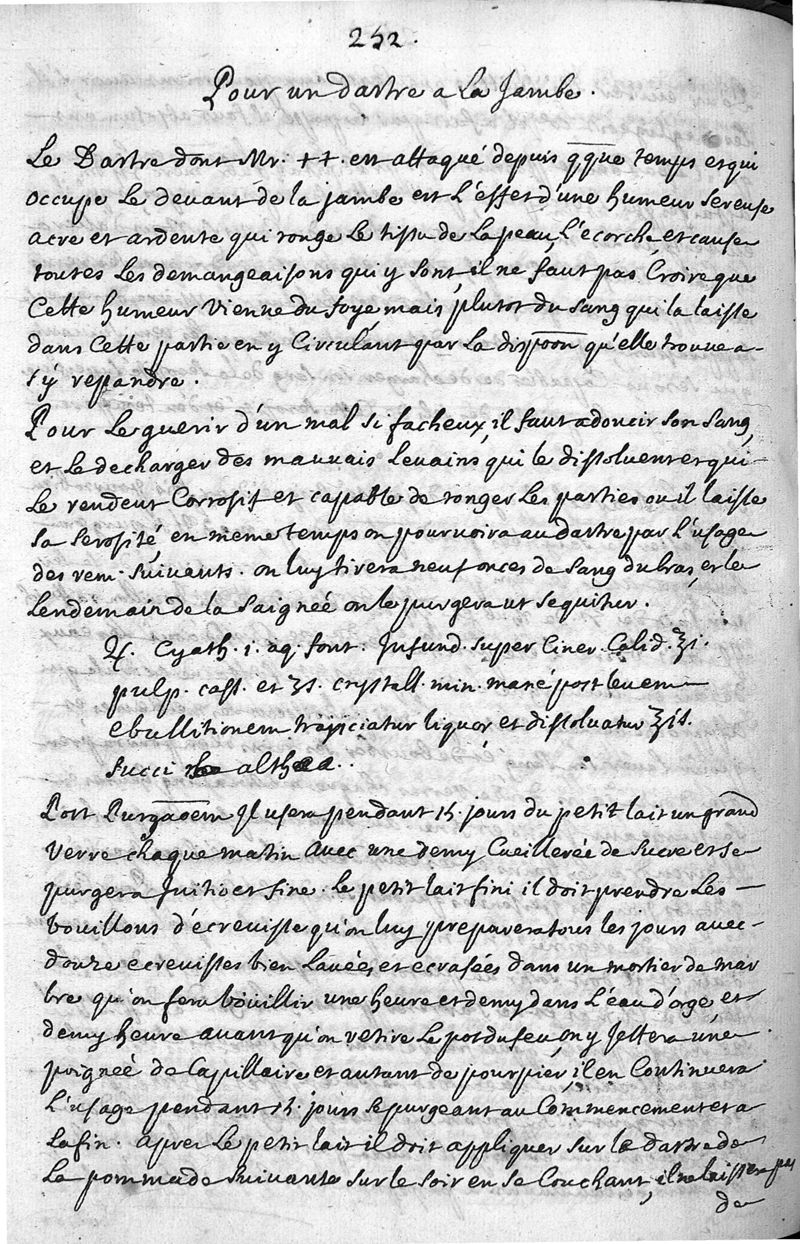 252.
Pour un dartre a la Jambe.
Le Dartre dont Mr. ++. est attaqué depuis qque temps et qui
occupe le devant de la jambe est l'effet d'une humeur sereuse
acre et ardente qui ronge le tissu de la peau, l'ecorche, et cause
toutes les demangeaisons qui y sont, il ne faut pas Croire que
Cette humeur Vienne du foye mais plutot du sang qui la laisse
dans Cette partie en y Circulant par la dispoon qu'elle trouve a
s'y repandre.
Pour le guerir d'un mal si facheux, il faut adoucir son sang,
et le decharger des mauvais levains qui le dissoluent et qui
le rendent Corrosif et capable de ronger les parties ou il laisse
sa serosité, en meme temps on pourvoira au dartre par l'usage
des rem. suivants. on luy tirera neuf onces de sang du bras, et le
lendemain de la saigneé on le purgera ut sequitur.
♃. Cyath. i. aq. font. Infund. super Ciner. Calid. ʒi.
pulp. cass. et ʒi. crystall. min. mané post levem
ebullitionem trajiciatur liquor et dissolvatur ʒis.
succi althea..
Post Purgaoem Il usera pendant 15. jours du petit lait un grand
Verre chaque matin avec une demy Cueillereé de sucre et se
purgera Initio et fine. le petit lait fini il doit prendre les
bouillons d'ecrevisse qu'on luy preparera tous les jours avec
douze ecrevisses bien laveés, et ecraseés dans un mortier de mar
bre qu'on fera boüillir une heure et demy dans l'eau d'orge, et
demy heure avant qu'on retire le pot du feu, on y Jettera une
poigneé de Capillaire et autant de pourpier, il en Continuera
l'usage pendant 15. jours se purgeant au Commencement et a
la fin. apres le petit lait il doit appliquer sur le dartre de
la pommade suivante sur le soir en se Couchant, il ne laissera pas
de